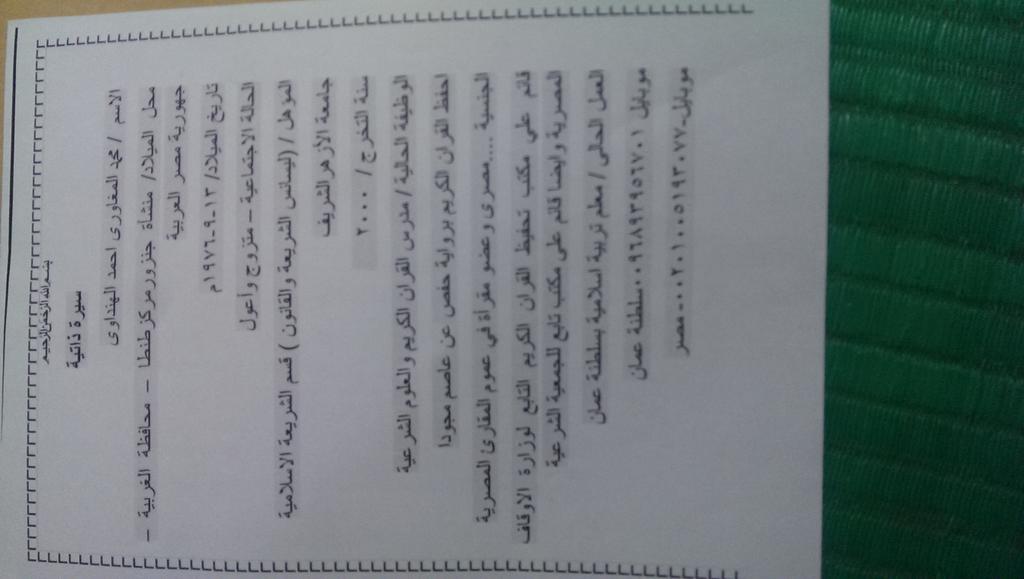 بسم الله الرحمن الرحيم
سيرة ذاتية
الاسم / محمد المغاورى احمد الهنداوى
محل الميلاد/ منشاة جنزور مركز طنطا - محافظة الغربية -
جهورية مصر العربية
تاريخ الميلاد/ ١٣-٩-١٩٧٦م
الحالة الاجتماعية - متزوج واعول
المؤهل / (ليسانس الشريعة والقانون ) قسم الشريعة الاسلامية
جامعة الأزهر الشريف
سنة التخرج / ٢٠٠٠
الوظيفة الحالية / مدرس القران الكريم والعلوم الشرعية
احفظ القران الكريم برواية حفص عن عاصم مجودا
الجنسية ....مصرى وعضو مقرأة في عموم المقارئ المصرية
قائم على مكتب تحفيظ القران الكريم التابع لوزارة الاوقاف
المصرية وايضا قائم على مكتب تابع للجمعية الشرعية
العمل الحالى / معلم تربية اسلامية بسلطنة عمان
موبايل ٠٠٩٦٨٩٣٩٥٦٧٠١سلطنة عمان
موبايل-٠٠٢٠١٠٠٥١٩٣٠٧٧-مصر